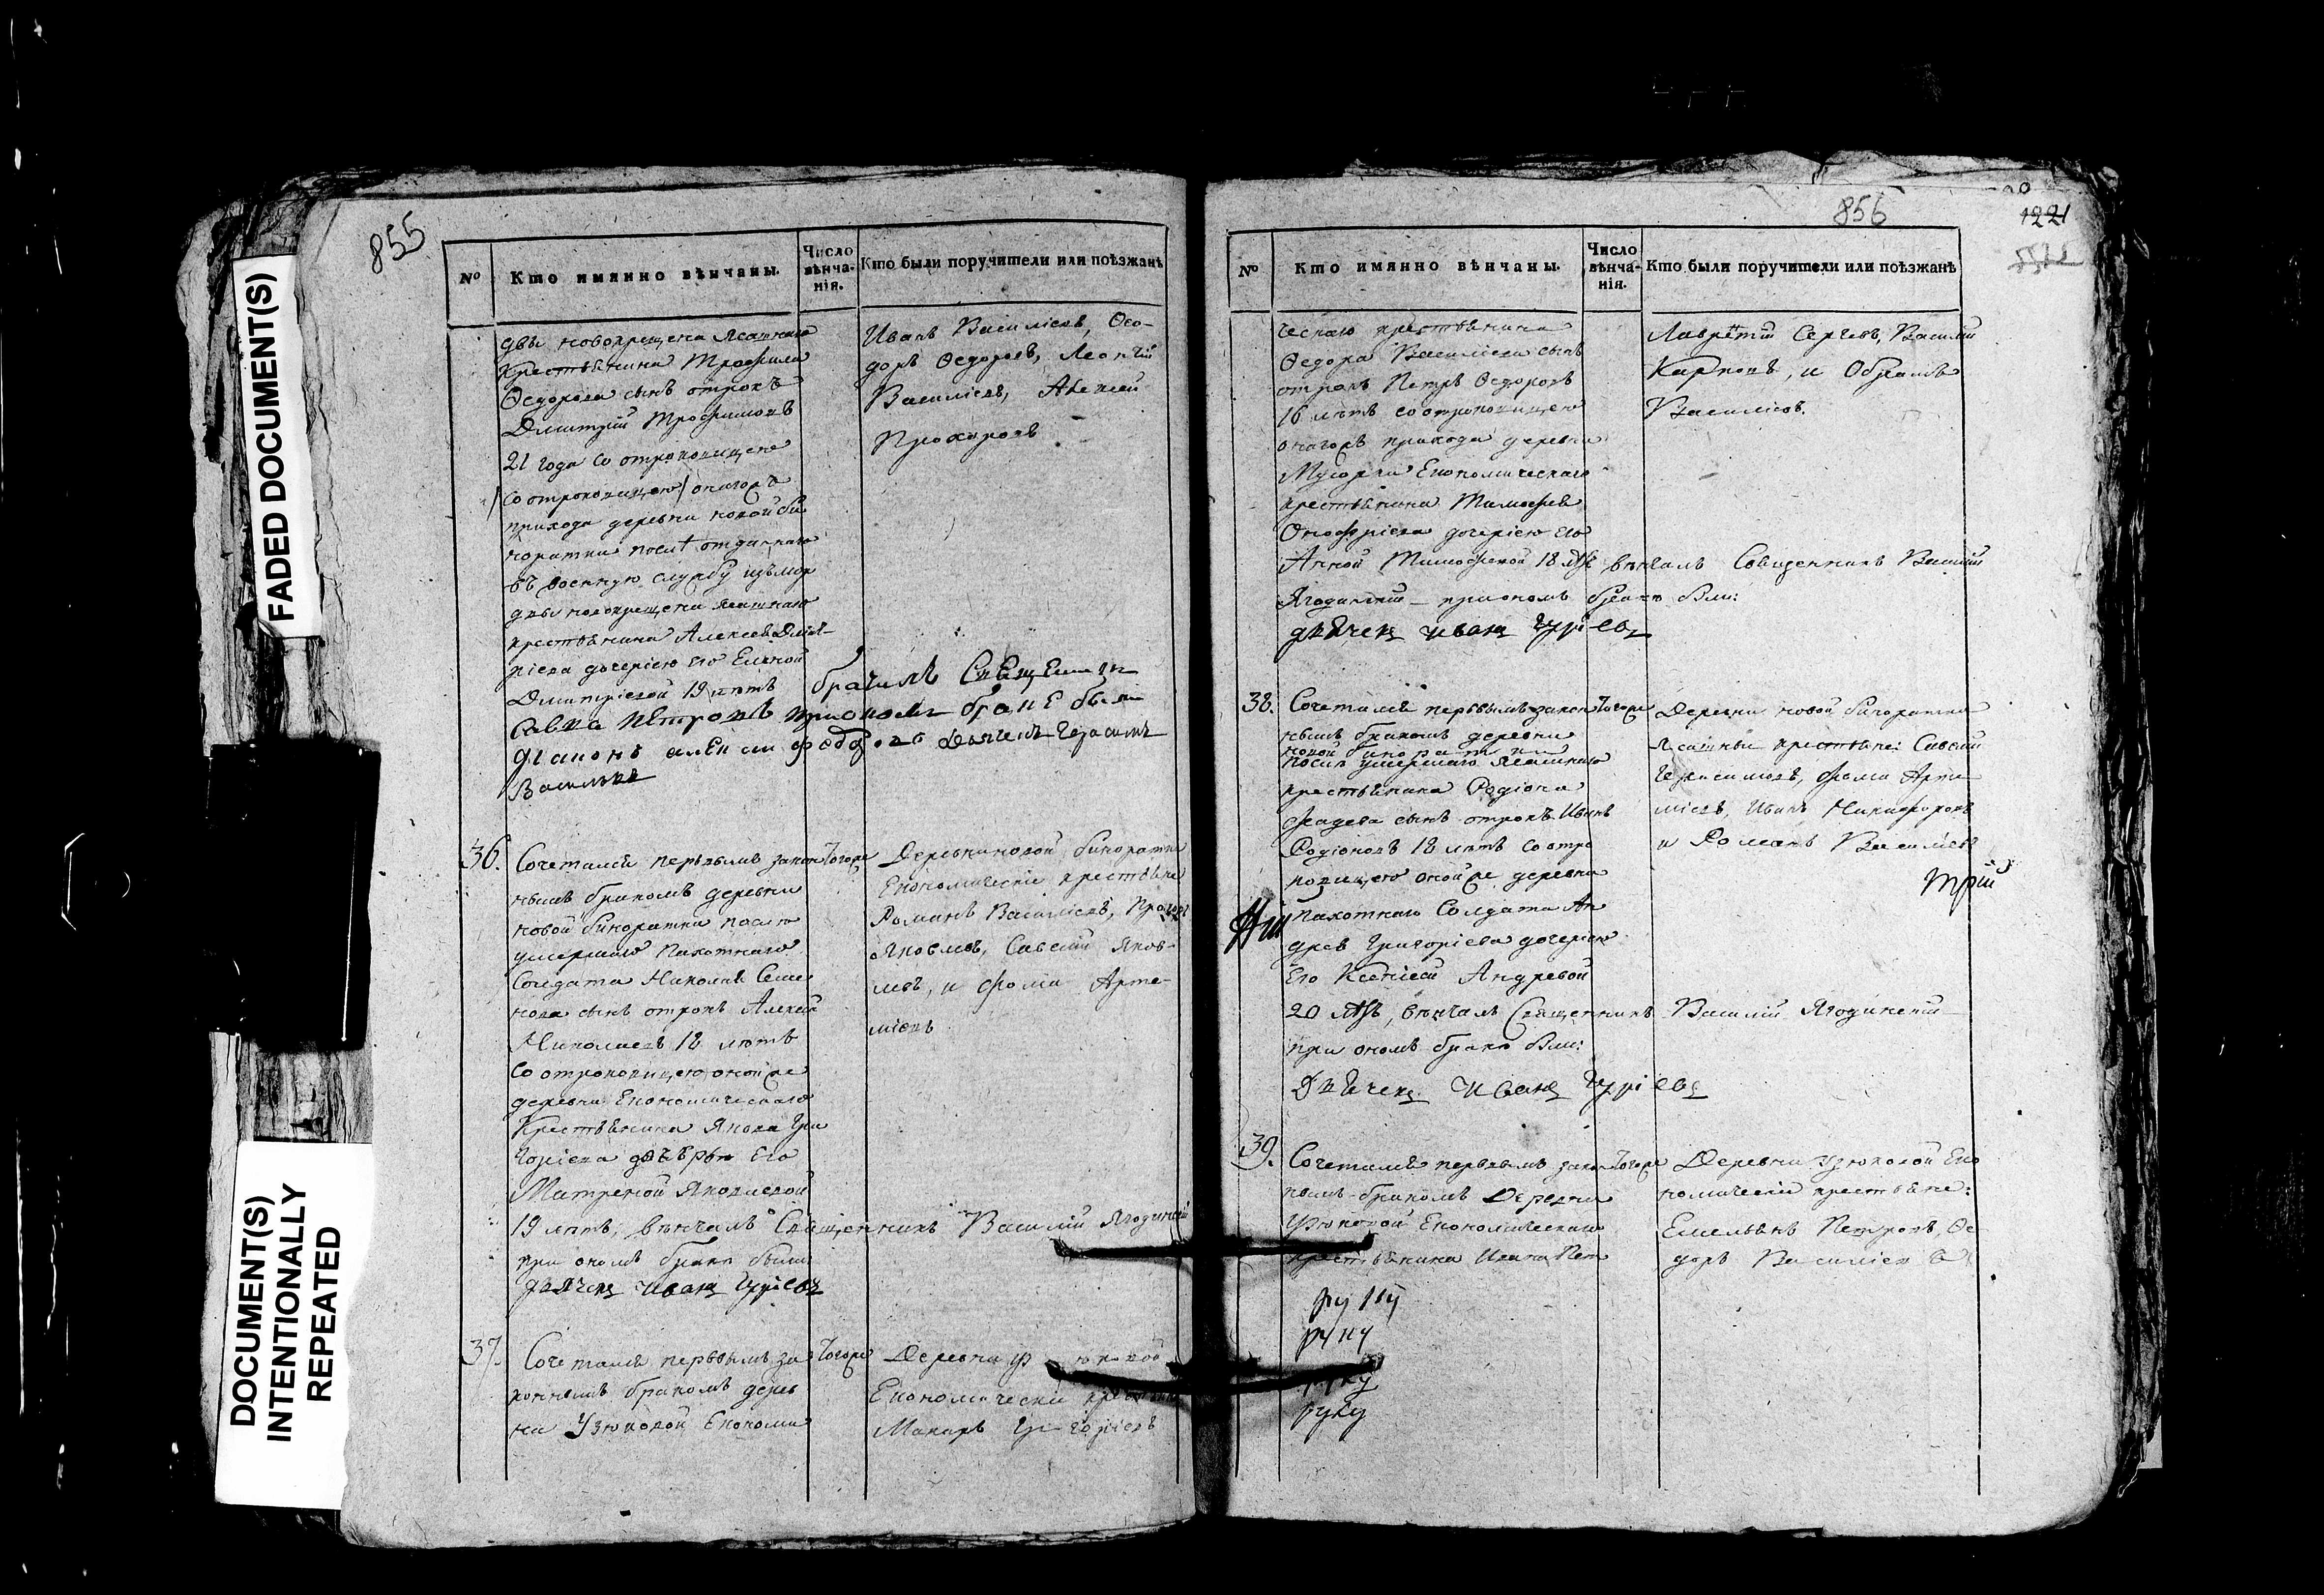 FADED DOCUMENT(S)
DOCUMENT(S)
INTENTIONALLY
REPEATED
855
№
Кто имянно вѣнчаны.
Число
вѣнча-
нія.
Кто были поручители или поѣзжанѣ
двы новокрещена ясашнаго
крестьянина Трофима
Ѳедорова сынъ отрокъ
Дмитрий Трофимовъ
21 года со отроковицею
/со отроковицею/ оногожъ
прихода деревни новой Би
норатки посл отданнаго
въ военную службу изъ мор
двы новокрещена ясашнаго
крестьянина Алексея Дмит-
риева дочерию его Еленой
Дмитриевой 19 летъ
брачилъ Священникъ
Савва Петровъ при ономъ браке были
диаконъ алексей дьячекъ Герасимъ
Васильевъ
Иванъ Василиевъ, Ѳео-
доръ Ѳедоровъ, Леонтий
Василиевъ, Алексей
Прохоровъ
36.
Сочетался первымъ закон Тогоже
нымъ бракомъ деревни
новой Биноратки посли
умершаго Пахотнаго
Солдата Николая Семе
нова сынъ отрокъ Алексей
Николаевъ 18 летъ
со отроковицею оной же
деревни Економическаго
Крестьянина Якова Гри
гориева дочерью Его
Матреной Яковлевой
19 летъ, венчалъ Священникъ Василий Ягодинский
при ономъ браке были
дьячекъ иванъ Гуриевъ
Деревни новой Биноратки
Економическіе крестьяне
Романъ Василиевъ, Прохоръ
Яковлевъ, Савелий Яков-
левъ, и Фома Арте-
миевъ
37.
Сочетался первымъ за Тогоже
коннымъ бракомъ дерев
ни Узюковой Економи
Деревни узюковой
Економически крестьяне
Макаръ Григориевъ
856
1221
№
Кто имянно вѣнчаны.
Число
вѣнча-
нія.
Кто были поручители или поѣзжанѣ
ческаго крестьянина
Ѳедора Василиева сынъ
отрокъ Петръ Ѳедоровъ
16 летъ со отроковицею
оногожъ прихода деревни
Мусорки Економическаго
крестьянина Тимофея
Онофриева дочерию его
Анной Тимофеевой 18 летъ венчалъ Священникъ Василий
Ягодинский – при ономъ браке были:
дьячекъ иванъ Гуриевъ
Лаврентий Сергеевъ, Василий
Карповъ, и
Василиевъ.
38.
Сочетался первымъ закон Тогоже
нымъ бракомъ деревни
новой биноратки
после умершаго ясашнаго
крестьянина Родиона
Фадеева сынъ отрокъ Иванъ
Родионовъ 18 летъ со отро
ковицею оной же деревни
пахотнаго Солдата Ан
дрея Григориева дочерию
Его Ксенией Андреевой
20 летъ, венчалъ Священникъ Василий Ягодинский
при ономъ браке были:
Дьячекъ иванъ Гуриевъ
Деревни новой биноратки
Ясашные крестьяне: Савелий
Герасимовъ, Фома Арте
миевъ, Иванъ Никифоровъ
и Романъ Василиевъ
трий
39.
Сочетался первымъ закон Тогоже
нымъ бракомъ Деревни
Узюковой Економическаго
крестьянина Ивана Пет
Деревни узюковой Еко
номически крестьяне:
Емельянъ Петровъ, Ѳе
доръ Василиевъ
руку
руку
руку
руку